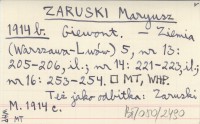 ZARUSKI Maryusz
1914 b. Giewont. - Ziemia
(Warszawa-Lwów) 5, nr 13:
205-206, il.; nr 14: 221-223, il.;
nr 16: 253-254. □ MT, WHP.
Też jako odbitka: Zaruski
M. 1914 c.
MT